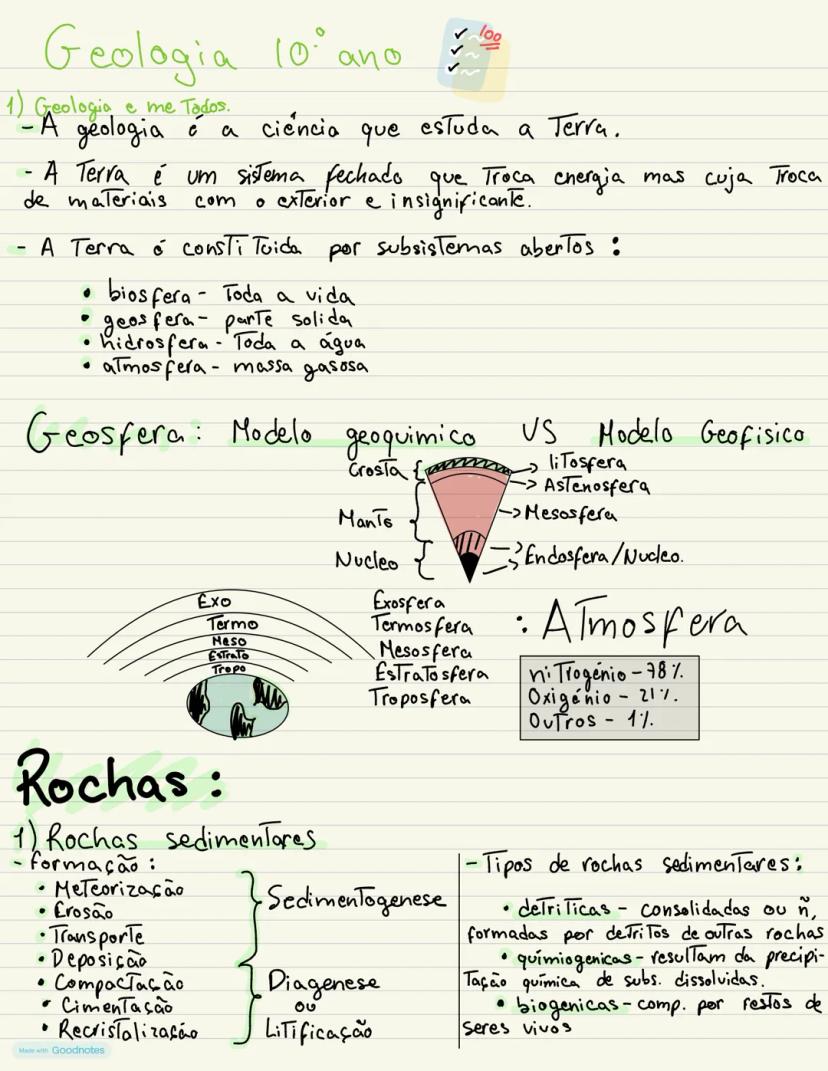 Geologia 10.º ano
100
1) Geologia e metodos.
- A geologia é a ciência que estuda a Terra.
- A Terra é um sistema fechado que troca energia mas cuja troca
de materiais com o exterior e insignificante.
- A Terra é constituida por subsistemas abertos :
• biosfera - Toda a vida
• geosfera - parte solida
• hidrosfera - Toda a água
• atmosfera - massa gasosa
Geosfera: Modelo geoquimico VS Modelo Geofisico
Crosta
Manto
Nucleo
-> litosfera
-> Astenosfera
-> Mesosfera
-> Endosfera/Nucleo.
Exo
Termo
Meso
Estrato
Tropo
Exosfera
Termosfera
Mesosfera
Estratosfera
Troposfera
: Atmosfera
nitrogénio - 78%.
Oxigénio - 21%.
Outros - 1%.
Rochas :
1) Rochas sedimentares
- formação :
• Meteorização
• Erosão
• Transporte
• Deposição
• Compactação
• Cimentação
• Recristalização
Sedimentogenese
Diagenese
ou
Litificação
- Tipos de rochas sedimentares:
• detriticas - consolidadas ou ñ,
formadas por detritos de outras rochas
• químiogenicas - resultam da precipi-
tação química de subs. dissolvidas.
• biogenicas - comp. por restos de
seres vivos
Made with Goodnotes